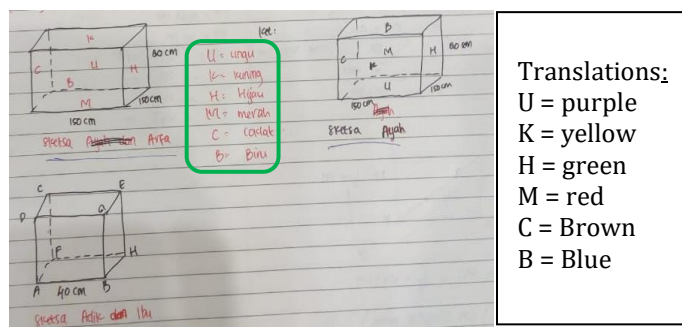 K
C
U
H
B
M
80 cm
150 cm
150 cm
Sketsa Ayah dan Arfa
Ket:
U = ungu
K = kuning
H = Hijau
M = merah
C = coklat
B = Biru
B
M
H
C
K
U
80 cm
150 cm
150 cm
Sketsa Ayah
C
E
D
G
F
H
A
40 cm
B
Sketsa Adik dan Ibu
Translations:
U = purple
K = yellow
H = green
M = red
C = Brown
B = Blue